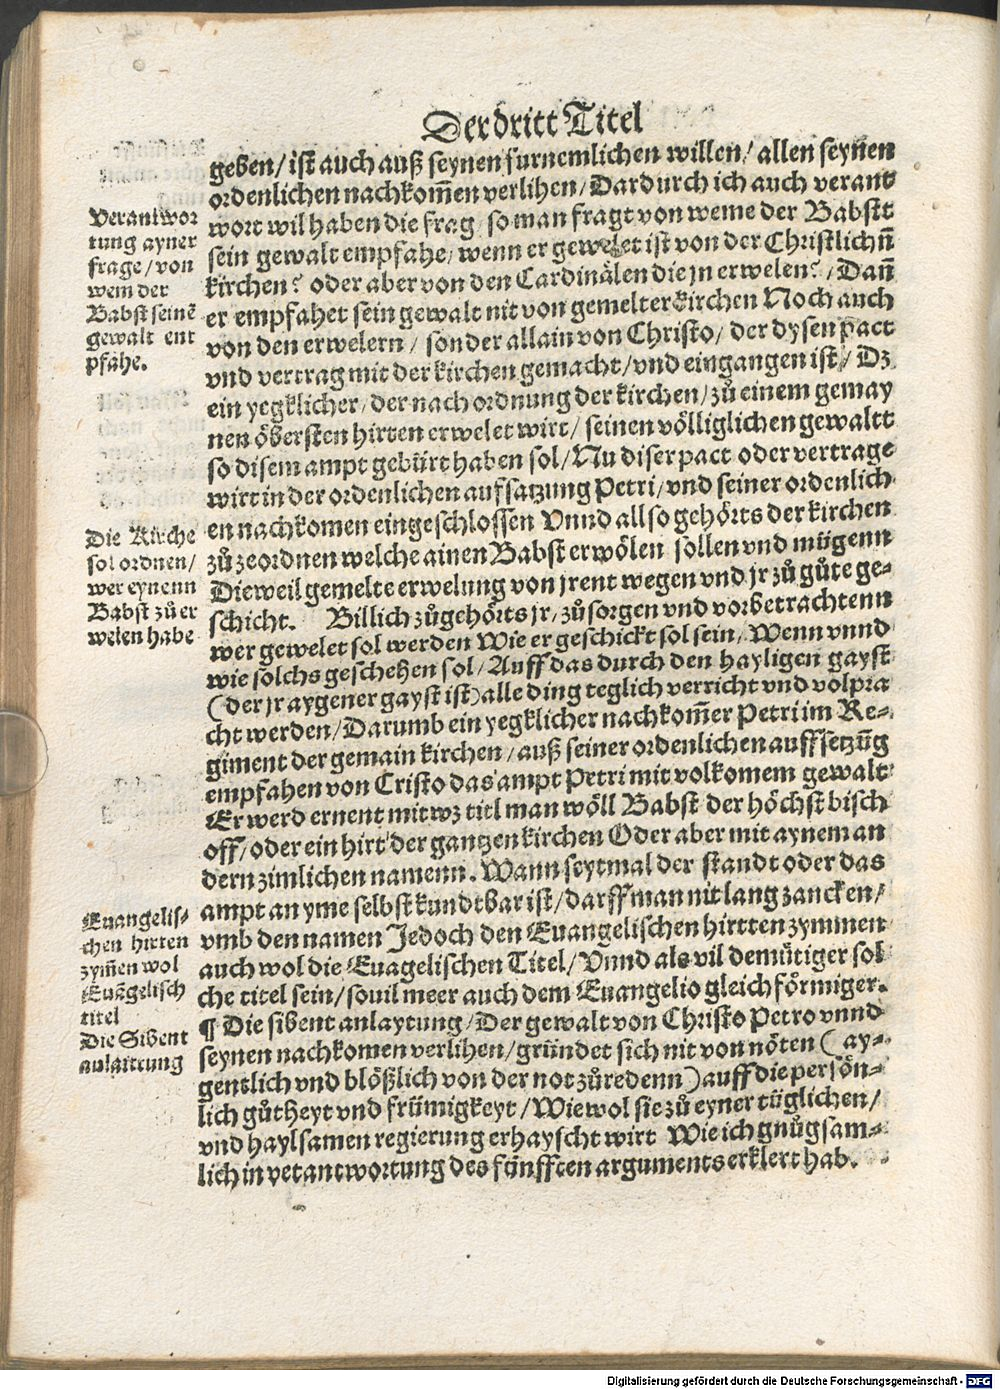 Der dritt Titel
geben/ ist auch auß seynen furnemlichen willen/ allen seynen
ordenlichen nachkom̄en verlihen/ Dardurch ich auch verant
wort wil haben die frag/ so man fragt von weme der Babstt
sein gewalt empfahe/ wenn er gewelet ist von der Christlichn̄
kirchen? oder aber von den Cardinälen die jn erwelen?/ Dan̄
er empfahet sein gewalt nit von gemelter kirchen Noch auch
von den erwelern/ sonder allain von Christo/ der dysen pact
vnd vertrag mit der kirchen gemacht/ vnd eingangen ist/ Dz
ein yegklicher/ der nach ordnung der kirchen/ zů einem gemay
nen öbersten hirten erwelet wirt/ seinen völliglichen gewaltt
so disem ampt gebürt haben sol/ Nu diser pact oder vertrage
wirt in der ordenlichen aufsatzung Petri/ vnd seiner ordenlich
en nachkomen eingeschlossen Vnnd allso gehörts der kirchen
zů zeordnen welche ainen Babst erwölen sollen vnd mügenn
Dieweil gemelte erwelung von jrent wegen vnd jr zů gůte ge-
schicht. Billich zůgehörts jr/ zů sorgen vnd vorbetrachtenn
wer gewelet sol werden Wie er geschickt sol sein/ Wenn vnnd
wie sölchs geschehen sol/ Auff das durch den hayligen gayst
(der jr aygener gayst ist) alle ding teglich verricht vnd volpra
cht werden/ Darumb ein yegklicher nachkom̄er Petri im Re-
giment der gemain kirchen/ auß seiner ordenlichen auffsetzūg
empfahen von Cristo das ampt Petri mit volkomem gewalt
Er werd ernent mit wz titl man wöll Babst der höchst bisch
off/ oder ein hirt der gantzen kirchen Oder aber mit aynem an
dern zimlichen namenn. Wann seytmal der standt oder das
ampt an yme selbst kundtbar ist/ darff man nit lang zancken/
vmb den namen Jedoch den Euangelischen hirtten zymmen
auch wol die Euagelischen Titel/ Vnnd als vil demütiger sol
che titel sein/ souil meer auch dem Euangelio gleich förmiger.
¶ Die sibent anlaytung/ Der gewalt von Christo Petro vnnd
seynen nachkomen verlihen/ gründet sich nit von nöten (ay-
gentlich vnd blößlich von der not zůredenn) auff die persön-
lich gůtheyt vnd frümigkeyt/ Wiewol sie zů eyner tüglichen/
vnd haylsamen regierung erhayscht wirt Wie ich gnůgsam-
lich in vetantwortung des fünfften arguments erklert hab.
Verantwor
tung ayner
frage/ von
wem der
Babst seinē
gewalt ent
pfahe.
Die Kirche
sol ordnen/
wer eynenn
Babst zů er
welen habe
Euangelis-
chen hirten
zym̄en wol
Euāgelisch
titel
Die Sibent
anlaittung
Digitalisierung gefördert durch die Deutsche Forschungsgemeinschaft - DFG